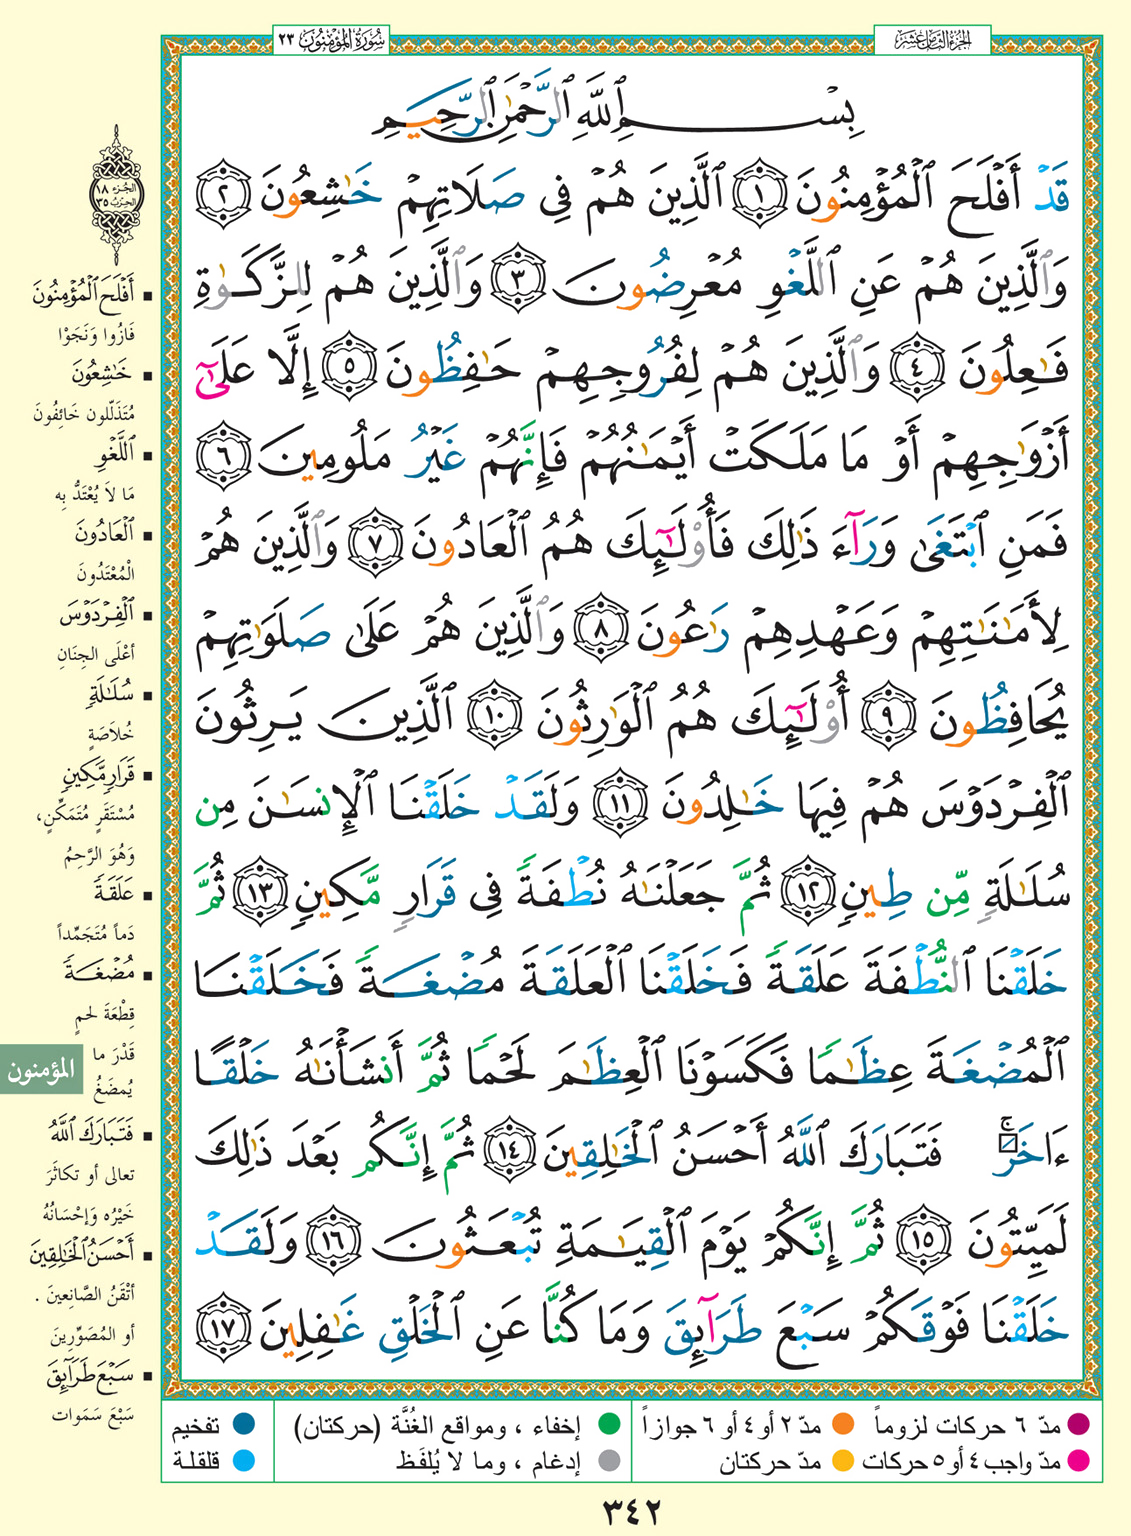 الجزء الثامن عشر
سورة المؤمنون ٢٣
بِسْمِ ٱللَّهِ ٱلرَّحْمَٰنِ ٱلرَّحِيمِ
قَدْ أَفْلَحَ ٱلْمُؤْمِنُونَ ١ ٱلَّذِينَ هُمْ فِى صَلَاتِهِمْ خَٰشِعُونَ ٢
وَٱلَّذِينَ هُمْ عَنِ ٱللَّغْوِ مُعْرِضُونَ ٣ وَٱلَّذِينَ هُمْ لِلزَّكَوٰةِ
فَٰعِلُونَ ٤ وَٱلَّذِينَ هُمْ لِفُرُوجِهِمْ حَٰفِظُونَ ٥ إِلَّا عَلَىٰٓ
أَزْوَٰجِهِمْ أَوْ مَا مَلَكَتْ أَيْمَٰنُهُمْ فَإِنَّهُمْ غَيْرُ مَلُومِينَ ٦
فَمَنِ ٱبْتَغَىٰ وَرَآءَ ذَٰلِكَ فَأُو۟لَٰٓئِكَ هُمُ ٱلْعَادُونَ ٧ وَٱلَّذِينَ هُمْ
لِأَمَٰنَٰتِهِمْ وَعَهْدِهِمْ رَٰعُونَ ٨ وَٱلَّذِينَ هُمْ عَلَىٰ صَلَوَٰتِهِمْ
يُحَافِظُونَ ٩ أُو۟لَٰٓئِكَ هُمُ ٱلْوَٰرِثُونَ ١٠ ٱلَّذِينَ يَرِثُونَ
ٱلْفِرْدَوْسَ هُمْ فِيهَا خَٰلِدُونَ ١١ وَلَقَدْ خَلَقْنَا ٱلْإِنسَٰنَ مِن
سُلَٰلَةٍ مِّن طِينٍ ١٢ ثُمَّ جَعَلْنَٰهُ نُطْفَةً فِى قَرَارٍ مَّكِينٍ ١٣ ثُمَّ
خَلَقْنَا ٱلنُّطْفَةَ عَلَقَةً فَخَلَقْنَا ٱلْعَلَقَةَ مُضْغَةً فَخَلَقْنَا
ٱلْمُضْغَةَ عِظَٰمًا فَكَسَوْنَا ٱلْعِظَٰمَ لَحْمًا ثُمَّ أَنشَأْنَٰهُ خَلْقًا
ءَاخَرَ ۚ فَتَبَارَكَ ٱللَّهُ أَحْسَنُ ٱلْخَٰلِقِينَ ١٤ ثُمَّ إِنَّكُم بَعْدَ ذَٰلِكَ
لَمَيِّتُونَ ١٥ ثُمَّ إِنَّكُمْ يَوْمَ ٱلْقِيَٰمَةِ تُبْعَثُونَ ١٦ وَلَقَدْ
خَلَقْنَا فَوْقَكُمْ سَبْعَ طَرَآئِقَ وَمَا كُنَّا عَنِ ٱلْخَلْقِ غَٰفِلِينَ ١٧
الجزء ١٨
الحزب ٣٥
أَفْلَحَ ٱلْمُؤْمِنُونَ
فَازُوا وَنَجَوْا
خَٰشِعُونَ
مُتَذَلِّلُون خَائِفُونَ
ٱللَّغْوِ
مَا لاَ يُعْتَدُّ بِه
ٱلْعَادُونَ
الْمُعْتَدُونَ
ٱلْفِرْدَوْسَ
أعْلَى الجِنَانِ
سُلَٰلَةٍ
خُلاَصَةٍ
قَرَارٍ مَّكِينٍ
مُسْتَقَرٍ مُتَمَكِّنٍ،
وَهُوَ الرَّحِمُ
عَلَقَةً
دَماً مُتَجَمِّداً
مُضْغَةً
قِطْعَةَ لحمٍ
قَدْرَ ما
يُمضَغُ
فَتَبَارَكَ ٱللَّهُ
تعالى أو تكاثَرَ
خَيْرُه وَإحْسَانُهُ
أَحْسَنُ ٱلْخَٰلِقِينَ
أتْقَنُ الصَّانِعينَ .
أو المُصَوِّرِينَ
سَبْعَ طَرَآئِقَ
سَبْعَ سَمَوات
المؤمنون
مدّ ٦ حركات لزوماً
مدّ ٢ أو ٤ أو ٦ جوازاً
إخفاء ، ومواقع الغُنَّة (حركتان)
تفخيم
مدّ واجب ٤ أو ٥ حركات
مدّ حركتان
إدغام ، وما لا يُلفَظ
قلقلة
٣٤٢